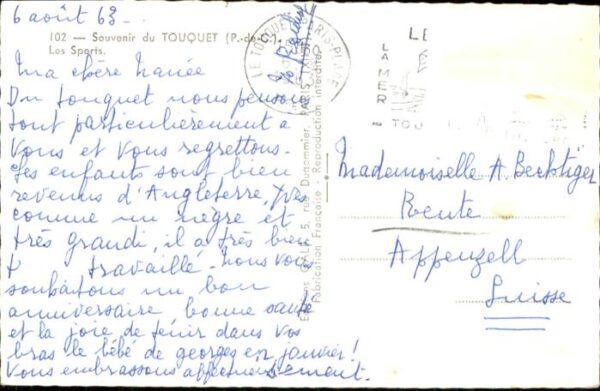 6 août 63.-
102 — Souvenir du TOUQUET (P.-de-C.).
Les Sports.
Ma chère Nanée
Du touquet nous pensons
tout particulièrement à
vous et vous regrettons.
Les enfants sont bien
revenus d'Angleterre, Yves
comme un nègre et
très grandi, il a très bien
travaillé. Nous vous
souhaitons un bon
anniversaire, bonne santé
et la joie de tenir dans vos
bras le bébé de georges en janvier!
Vous embrassons affectueusement.
5, rue Dugommier, PARIS
Fabrication Française - Reproduction interdite
LE TOUQUET-PARIS-PLAGE
LE
LA MER
TOU
Mademoiselle A. Bechtiger
Reute
Appenzell
Suisse